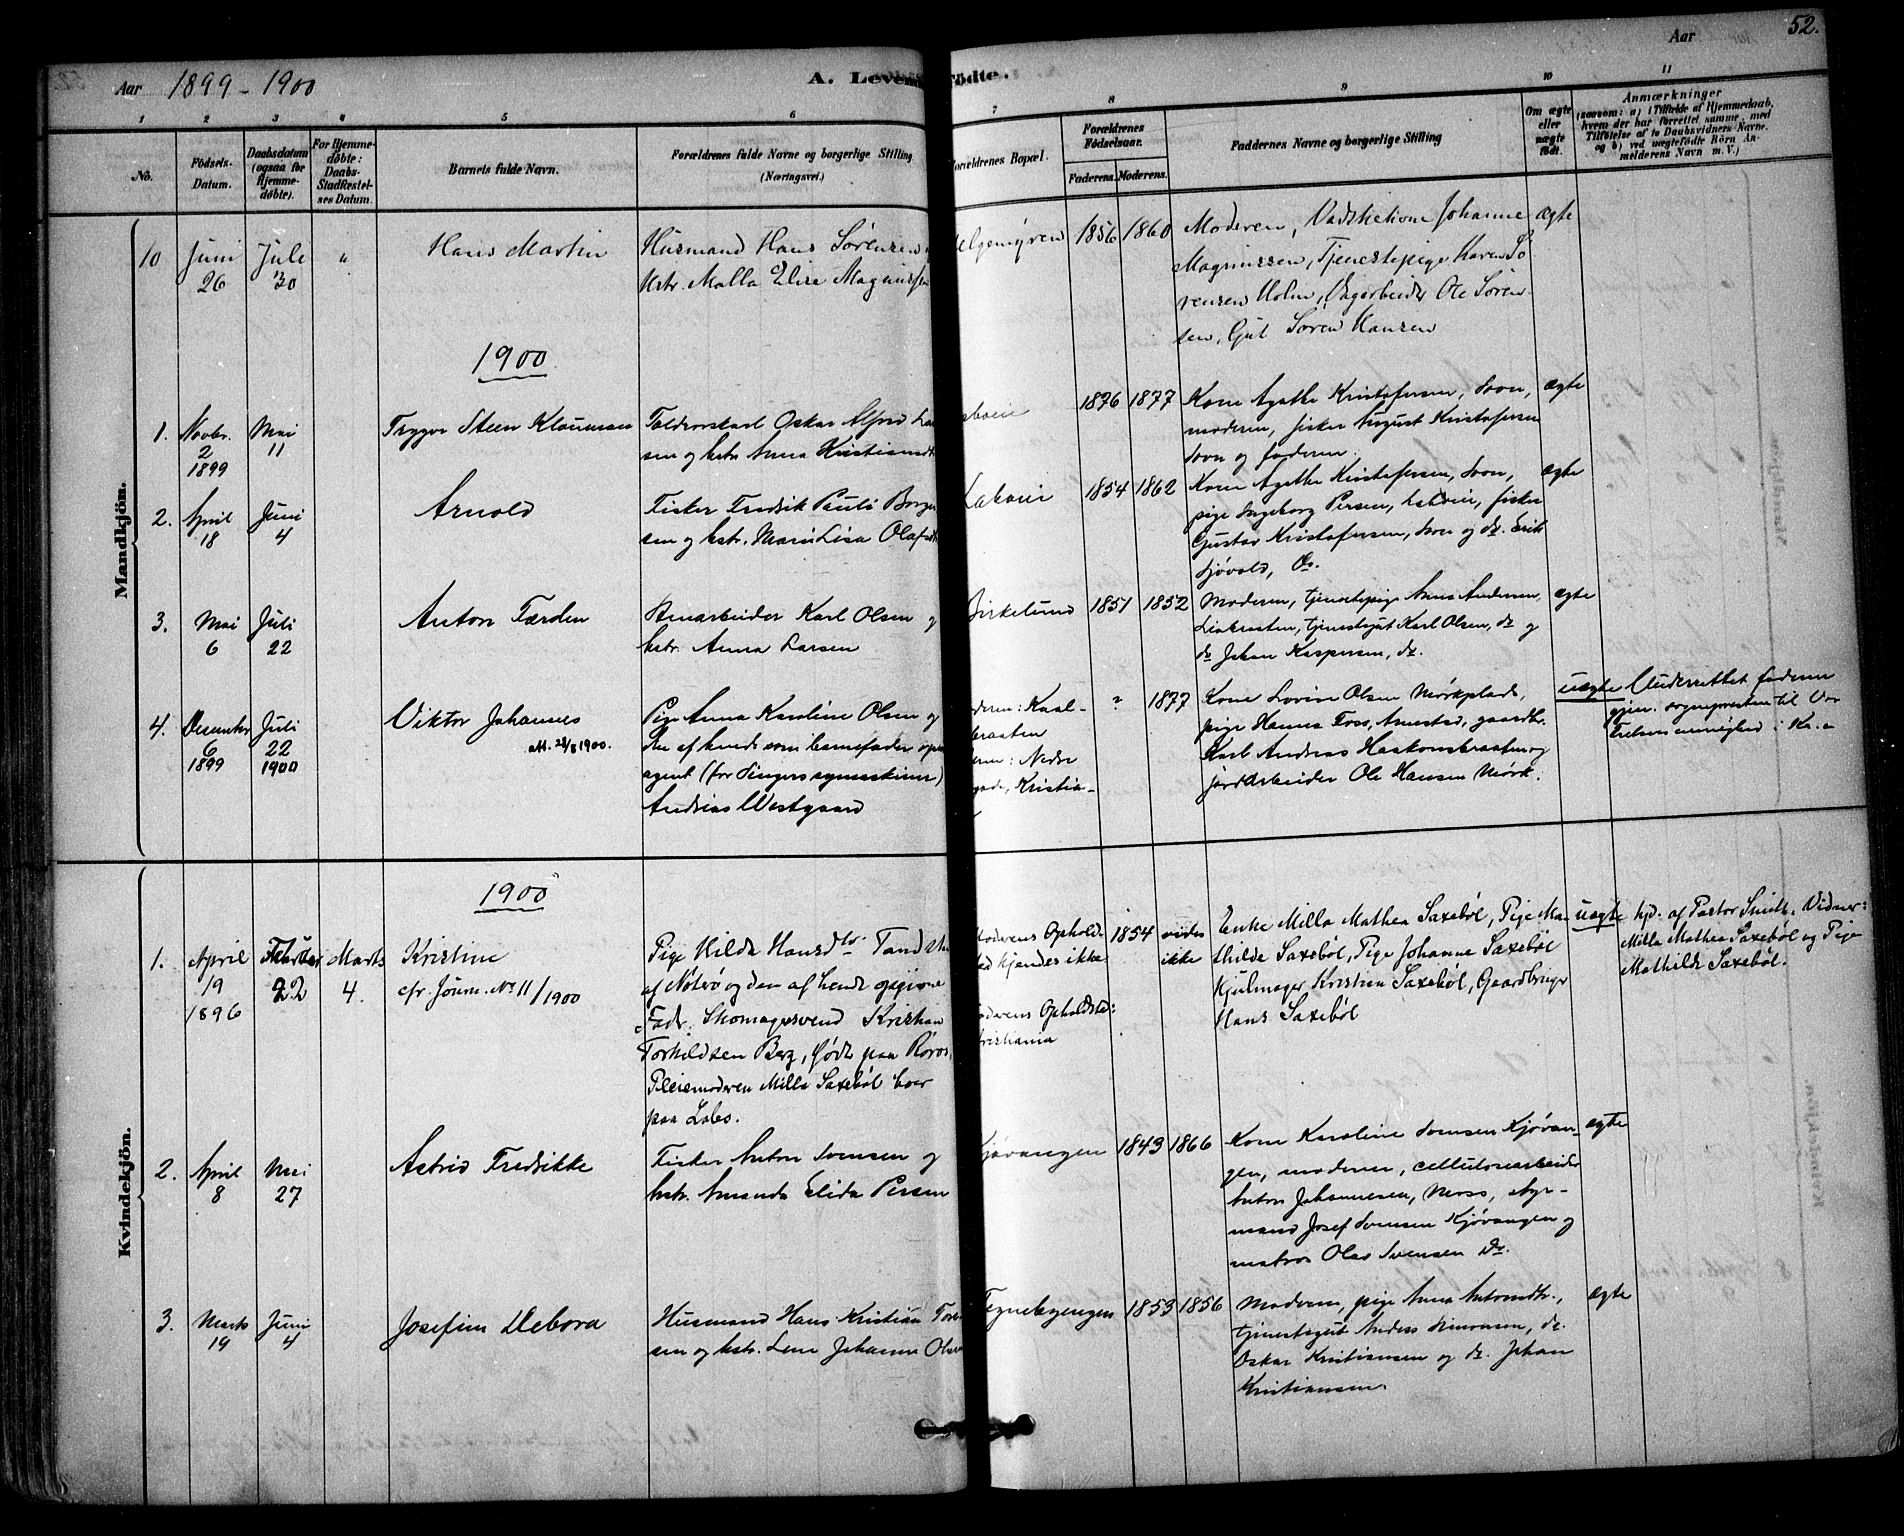 Aar 1899 - 1900
A. Levende Fødte.
Aar
52.
1 2 3 4 5 6 7 8 9 10 11
No.
Fødsels-
Datum.
Daabsdatum
(ogsaa for
Hjemme-
døbte).
For Hjemme-
døbte:
Daabs-
Stadfæstel-
ses Datum.
Barnets fulde Navn.
Forældrenes fulde Navne og borgerlige Stilling
(Næringsvei.)
Forældrenes Bopæl.
Forældrenes
Fødselsaar.
Faderens.
Moderens.
Faddernes Navne og borgerlige Stilling
Om ægte
eller
uægte
født.
Anmærkninger
(saasom: a) i Tilfælde af Hjemmedaab,
hvem der har forrettet samme, med
Tilføielse af to Daabsvidners Navne,
og b) ved uægtefødte Børn An-
melderens Navn m. V.)
Mandkjön.
10 Juni
26
Juli
30
"
Hans Martin
Husmand Hans Sørensen
Hstr. Malla Elise Magnussen
elgemyren
1856 1860
Moderen, Johanne
Magnussen, Tjenestepige Karen Sø
rensen Holm, Dagarbeider Ole Søren-
sen, Gut Søren Hansen
ægte
1900
1. Novbr.
2
1899
Mai
11
Trygve Steen Klausman
Toldrorskarl Oskar Alfred Lar
sen og hstr. Anna Kristiansdt
1876 1877
Kone Agathe Kristofersen, Soon,
moderen, fisker August Kristofersen
Soon og faderen.
ægte
2. April
18
Juni
4
Arnold
Fisker Fredrik Pauli Borger
sen og hstr. Marie Lisa Olafsdt
Labove
1854 1862
Kone Agathe Kristofersen, Soon,
pige Ingeborg Persen, Labovie, fisker
Gustav Kristofersen, Soon og do. Erik
Sjøvold, Do.
ægte
3. Mai
6
Juli
22
Anton Færden
Stenarbeider Karl Olsen og
hstr. Anna Larsen
Birkelund
1851 1852
Moderen, tjenestepige Anna Andersen,
Liabraaten, tjenestegut Karl Olsen, do og
do Johan Kaspersen, do.
ægte
4. Desember
6
1899
Juli
22
1900
Viktor Johannes
att. 28/8 1900.
Pige Anna Karoline Olsen og
den af hende som barnefader opgiv.
agent (for Singers symaskiner)
Andreas Westgaard
deren: Kaal-
braaten
eren: Nedre
gade, Kristia-
? 1877
Kone Lovise Olsen Mørkplads,
pige Hanna Foss, Amestad, gaardbr.
Karl Andreas Haakonsbraaten og
jordarbeider Ole Hansen Mørk.
uægte
Underrettet faderen
gjen. sognepresten til Vor
Frelsers menighed i Kr.a
Kvindekjön.
1900
1. April
19
1896
Februar
22
Marts
4.
Kristine
cfr. Journ. No 11/1900
Pige Hilda Hansdtr Tandstu
af Nøterø og den af hende opgivne
Fadr. Skomagersvend Kristian
Torkildsen Berg, født paa Røros,
Pleiemoderen Milla Saxebøl boer
paa Labo.
Moderens Ophold
sted kjendes ikke
Faderens Opholdsted:
Kristiania
1854 vides
ikke
Enke Milla Mathea Saxebøl, Pige Ma-
thilde Saxebøl, Pige Johanne Saxebøl
Hjulmager Kristian Saxebøl, Gaardbruger
Hans Saxebøl
uægte
hjd. af Pastor Smith. Vidner:
Milla Mathea Saxebøl og Pige
Mathilde Saxebøl.
2. April
8
Mai
27
Astrid Fredrikke
Fisker Anton Svensen og
hstr. Amanda Elida Persen
Kjøvangen
1843 1866
Kone Karoline Svensen Kjøvan-
gen, moderen, cellulosearbeider
Anton Johannesen, Moss, styr-
mand Josef Svensen Kjøvangen og
matros Olav Svensen Do.
ægte
3. Marts
19
Juni
4
Josefine Debora
Husmand Hans Kristian Tore
sen og hstr. Lene Johanne Olsen
Tegnebyengen
1853 1856
Moderen, pige Anna Antondtr.,
tjenestegut Anders Simonsen, do.
Oskar Kristiansen og do. Johan
Kristiansen.
ægte